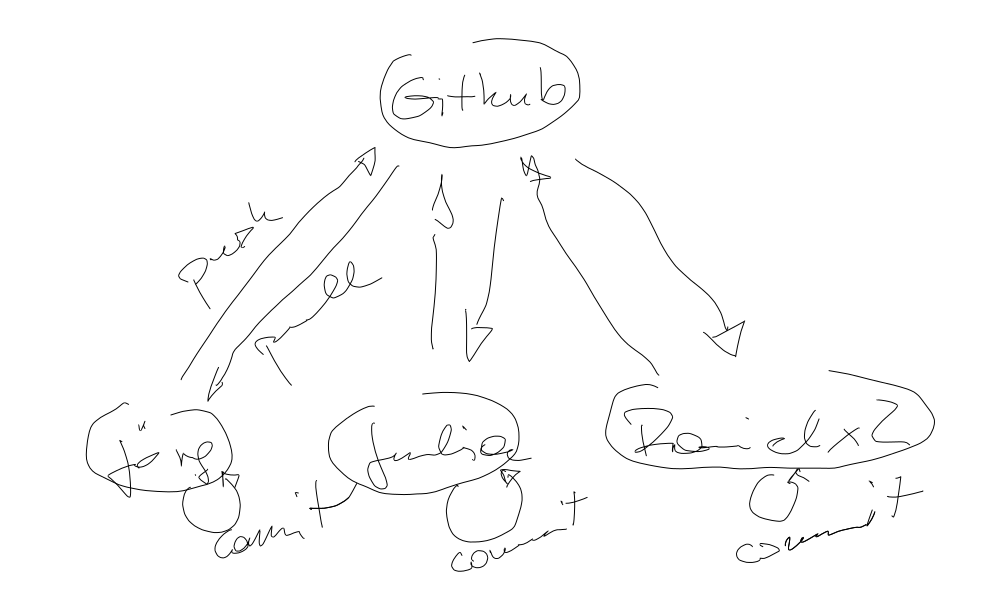 Github
push
pull
Jörg
Julia
Daniel x2
commit
commit
commit